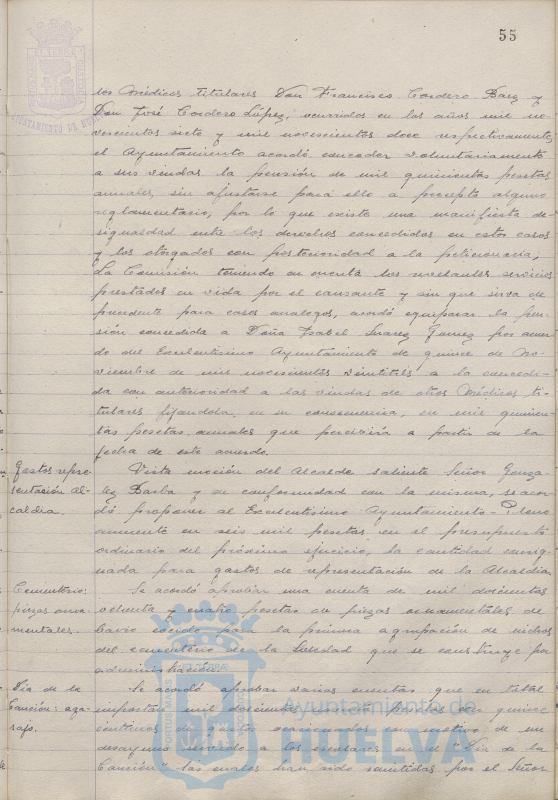 55
los Médicos titulares Don Francisco Cordero Baez y
Don José Cordero López, ocurridos en los años mil no-
vecientos siete y mil novecientos doce respectivamente,
el Ayuntamiento acordó conceder voluntariamente
a sus viudas la pensión de mil quinientas pesetas
anuales, sin ajustarse para ello a precepto alguno
reglamentario, por lo que existe una manifiesta de-
sigualdad entre los derechos concedidos en estos casos
y los otorgados con posterioridad a la peticionaria,
La Comisión teniendo en cuenta los relevantes servicios
prestados en vida por el causante y sin que sirva de
precedente para casos analogos, acordó equiparar la pen-
sión concedida a Doña Isabel Suarez Gomez por acuer-
do del Excelentísimo Ayuntamiento de quince de No-
viembre de mil novecientos veintitrés a la concedi-
da con anterioridad a las viudas de otros Médicos ti-
tulares fijandola, en su consecuencia, en mil quinien-
tas pesetas anuales que percibirá a partir de la
fecha de este acuerdo.
Gastos repre-
sentación Al-
caldia.
Vista moción del Alcalde saliente Señor Gonza-
lez Barba y de conformidad con la misma, se acor-
dó proponer al Excelentísimo Ayuntamiento-Pleno
aumente en seis mil pesetas en el presupuesto
ordinario del próximo ejercicio, la cantidad consig-
nada para gastos de representación de la Alcaldia.
Cementerio:
piezas orna-
mentales.
Se acordó aprobar una cuenta de mil doscientas
ochenta y cuatro pesetas en piezas ornamentales de
barro cocido para la primera agrupación de nichos
del cementerio de la Soledad que se construye por
administración.
Dia de la
Canción: aga-
sajo.
Se acordó aprobar varias cuentas que en total
importan mil doscientas pesetas quince
centimos de gastos con motivo de un
desayuno servido a los escolares en el "Dia de la
Canción" las cuales han sido remitidas por el Señor
Ayuntamiento de
HUELVA